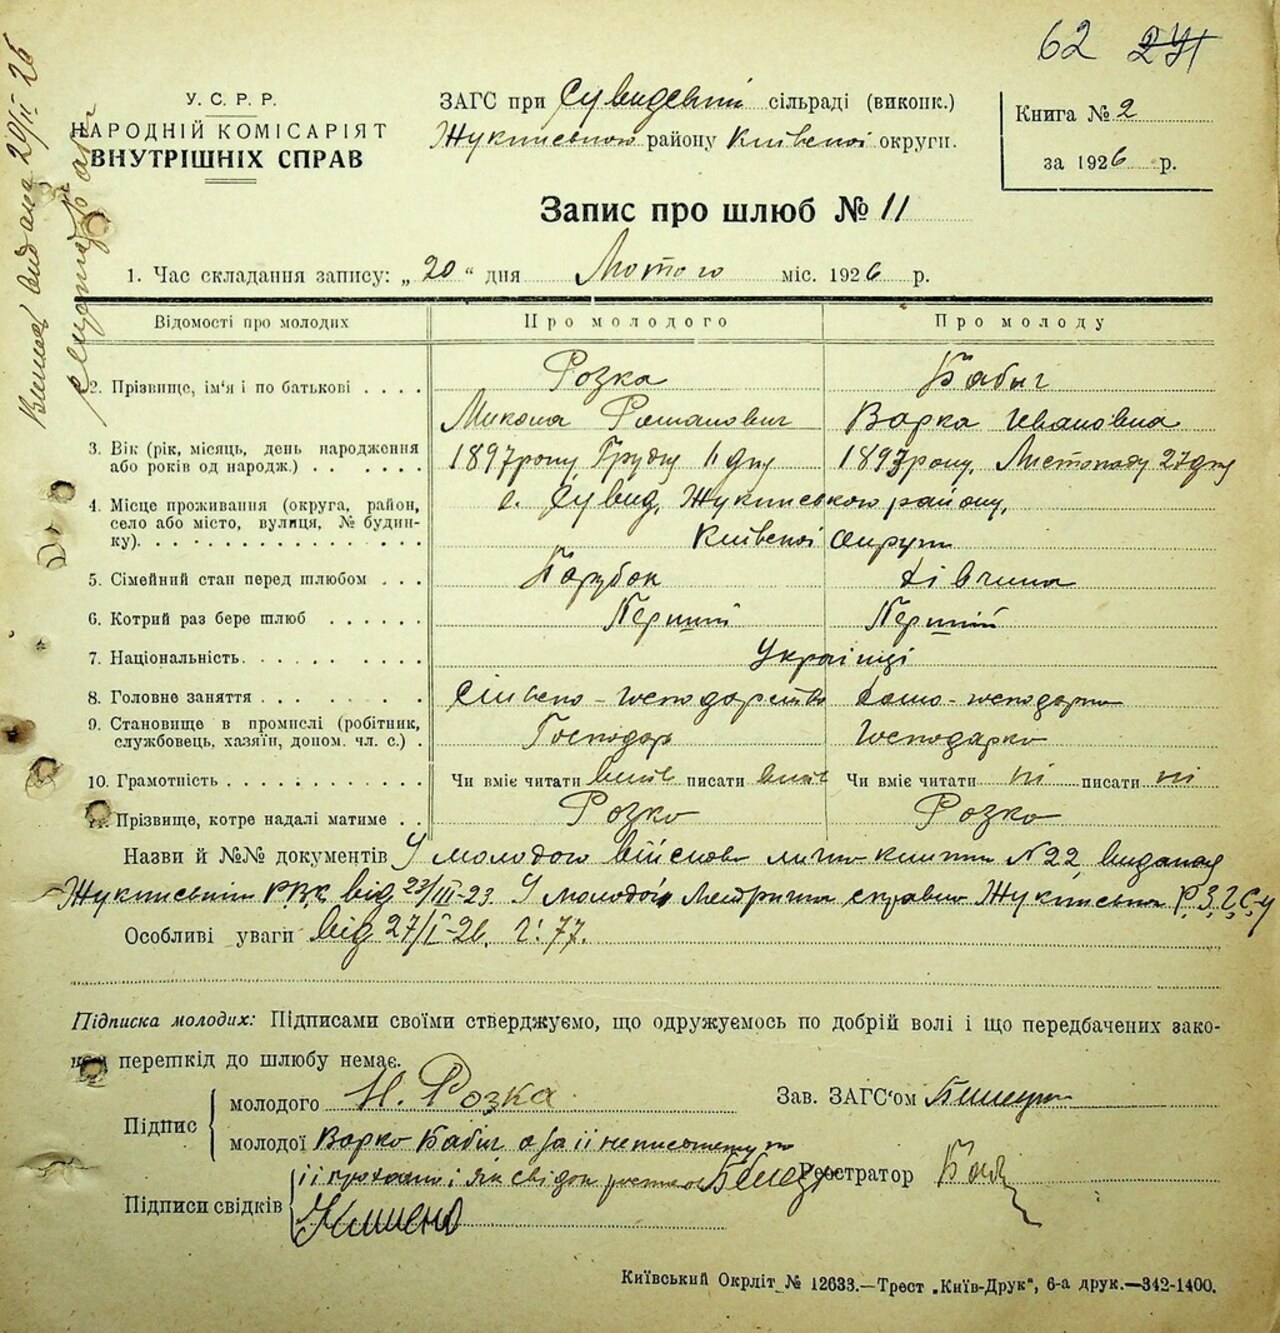 62 24
Виписъ видана 20/II 26
У. С. Р. Р.
НАРОДНІЙ КОМІСАРІЯТ
ВНУТРІШНІХ СПРАВ
ЗАГС при Сувидській сільраді (виконк.)
Жукинського району Київської округи.
Книга № 2
за 1926 р.
Запис про шлюб № 11
1. Час складання запису: „20“ дня Лютого міс. 1926 р.
Відомості про молодих Про молодого Про молоду
2. Прізвище, ім'я і по батькові . . . . Розка Бабич
Микола Романович Варка Івановна
3. Вік (рік, місяць, день народження або років од народж.) . . . . . . 1897 року Грудня 11 дня 1897 року, Листопаду 27 дня
4. Місце проживання (округа, район, село або місто, вулиця, № будинку). . . . . . . . . . . . . . . с. Сувид, Жукинського району,
Київскої Округи
5. Сімейний стан перед шлюбом . . . Парубок Дівчина
6. Котрий раз бере шлюб . . . . . . Перший Перший
7. Національність. . . . . . . . . . . Українці
8. Головне заняття . . . . . . . . . Сільсько-господарство Домо-господарка
9. Становище в промислі (робітник, службовець, хазяїн, допом. чл. с.) . Господарь Господарка
10. Грамотність . . . . . . . . . . . . Чи вміє читати вміє писати вміє Чи вміє читати ні писати ні
11. Прізвище, котре надалі матиме . . Розко Розко
Назви й №№ документів У молодого військова книжка N 22, видана
Жукинським Р.В.К. від 23/III-23. У молодої Метрична справка Жукинська Р.З.Г.С-у
Особливі уваги від 27/I-26. г: 77.
Підписка молодих: Підписами своїми стверджуємо, що одружуємось по добрій волі і що передбачених зако-
ном перешкід до шлюбу немає.
Підпис молодого Н. Розка Зав. ЗАГС'ом
молодої Варко Бабіч а за її неписьменну
її проханні і як свідок Реєстратор
Підписи свідків
Київський Окрліт № 12633.—Трест „Київ-Друк“, 6-а друк.—342-1400.